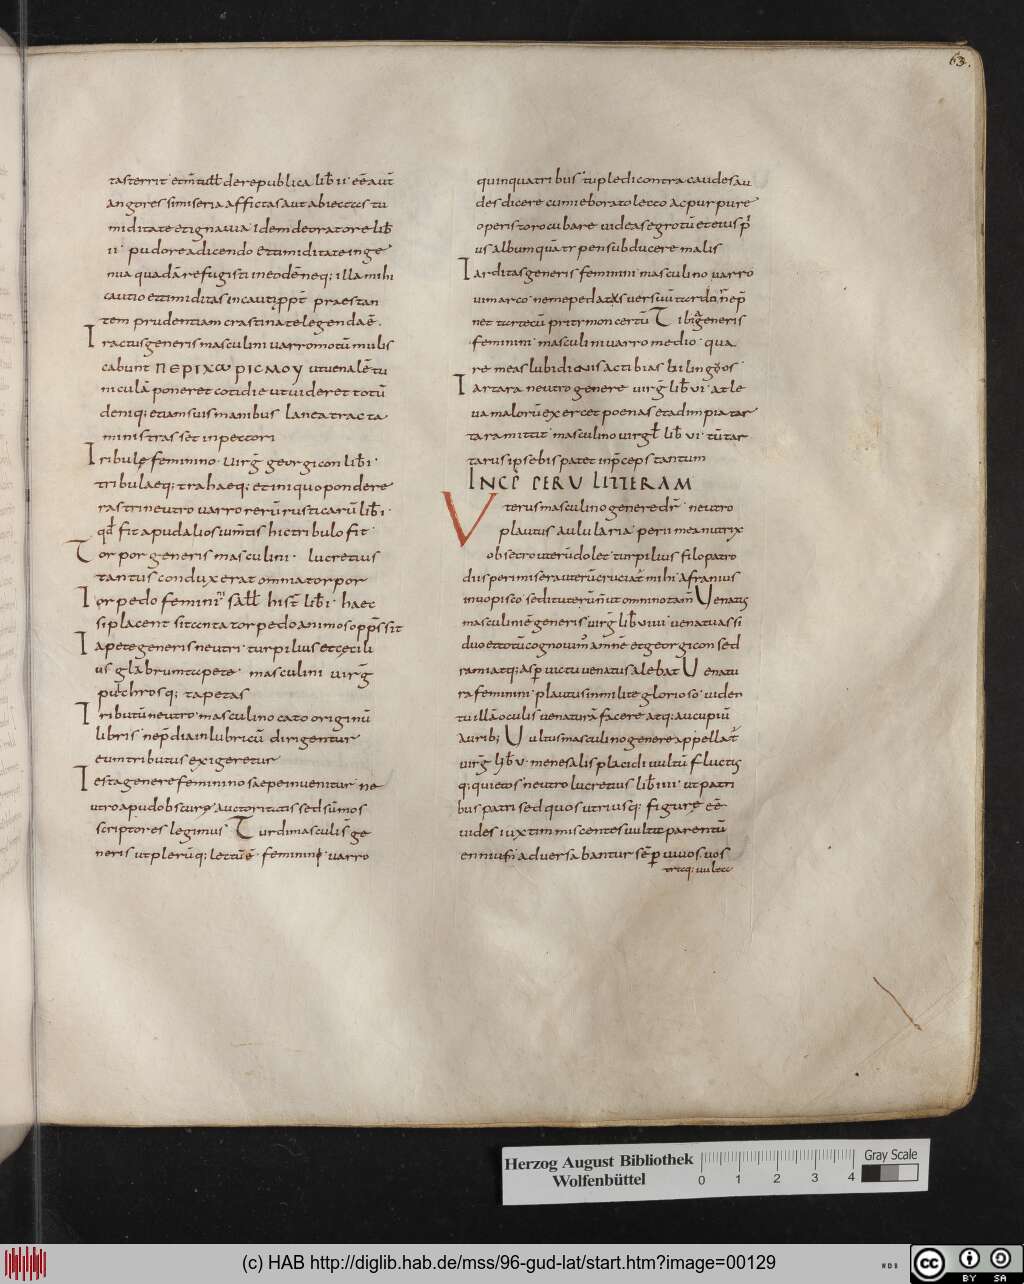 63.
tasterrit etm̄ tull̄ derepublica lib̄ ii eēaut̄
angores simiseria afflictas aut abiectas tu
miditate etignauia Idem deoratore lib̄
ii pudoreadicendo ettimiditateinge
nua quadā refugisti ineodēneq; illamihi
cautio ettimiditas incauti ppt̄ praestan
tem prudentiam crastinatelegendaē.
Tractus generis masculini uarro motū mulis
cabunt ΠΕΡΙΧΩΡΙCΜΟΥ utuenalētu
niculā poneret cotidie utuideret totū
deniq; etiam suis manibus lanea tracta
ministrasset inpectori
Tribule feminino uirg̅ georgicon lib̄ i
tribulaeq; trahaeq; etiniquopondere
rastri neutro uarro rerū rusticarū lib̄ i
qd̄ fit apud alios iumtis hic tribulo fit
Torpor generis masculini lucretius
tantus conduxerat omnia torpor
Torpedo feminini sall̄ hist̄ lib̄ i haec
siplacent sit tanta torpedo animos opp̄ssit
Tapete generis neutri turpilius etcecili
us glabrum tapete masculini uirg̅
pulchrosq; tapetas
Tributū neutro masculino cato originū
libris nep̄dia inlubricū dirigentur
eum tributus exigeretur
Testa genere feminino saepe inuenitur ne
utro apud obscure auctoritatis sed sūmos
scriptores legimus Turdi masculi ge
neris ut plerūq; lectū ē feminini uarro
quinquatribus tuple dicontra caudes au
des dicere cum eborato lecto acpurpure
operistorocubare uideas egrotū eteius p̄
us album quā tr pen subducere malis
Tarditas generis feminini masculino uarro
uimarco ne me pedatus uersuū tardor nep̄
net tartecū pritr mon certū Tibia generis
feminini masculini uarro medio qua
re meas lubidi quis acti bias bilinguos
Tartara neutro genere uirg̅ lib̄ vi atle
ua malorū exercet poenas etadimpia tar
tara mittit masculino uirgl̄ lib̄ vi tū tar
tarus ipse bis patet inp̄ceps tantum
INCP̄ PER U LITTERAM
Uterus masculino genere dr̄ neutro
plautus aulularia perii mea nutrix
obsecro uterū dolet turpilius filopatro
dii speri misera uterū cruciat mihi Afranius
inuopisco sedituterū n̄ ut omnino tam̄ Uenatus
masculini ē generis uirg̅ lib̄ uiiii uenatu assi
duo et totū cognouim̄ amnē et georgicon sed
ramiatq; asp̄ uictu uenatus alebat Uenatu
ra feminini plautus inmilite glorioso uiden
tu illā oculis uenaturā facere atq; aucupiū
aurib; Uultus masculino genere appellat̄
uirg̅ lib̄ v mene salis placidi uultū fluctis
q; quietos neutro lucretius lib̄ iiii ut patri
bus patri sed quos utriusq; figure eē
uides iuxtim miscentes uulta parentū
ennius n̄ aduersabantur sēp uiuos uos
traq; uulta
Herzog August Bibliothek
Wolfenbüttel
0 1 2 3 4
Gray Scale
(c) HAB http://diglib.hab.de/mss/96-gud-lat/start.htm?image=00129
WDB
cc BY SA